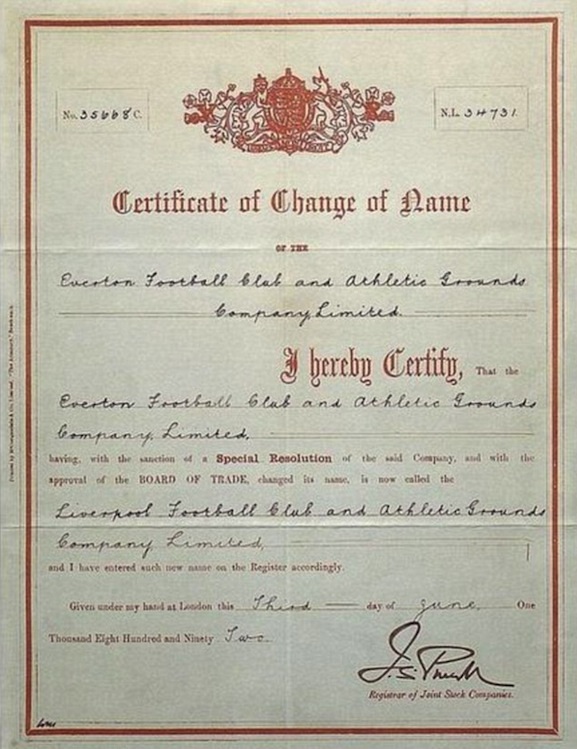 No. 35668 C.
N.L. 34731
Certificate of Change of Name
OF THE
Everton Football Club and Athletic Grounds
Company, Limited.
I hereby Certify, That the
Everton Football Club and Athletic Grounds
Company, Limited,
having, with the sanction of a Special Resolution of the said Company, and with the
approval of the BOARD OF TRADE, changed its name, is now called the
Liverpool Football Club and Athletic Grounds
Company Limited,
and I have entered such new name on the Register accordingly.
Given under my hand at London this Third day of June, One
Thousand Eight Hundred and Ninety Two.
Registrar of Joint Stock Companies.